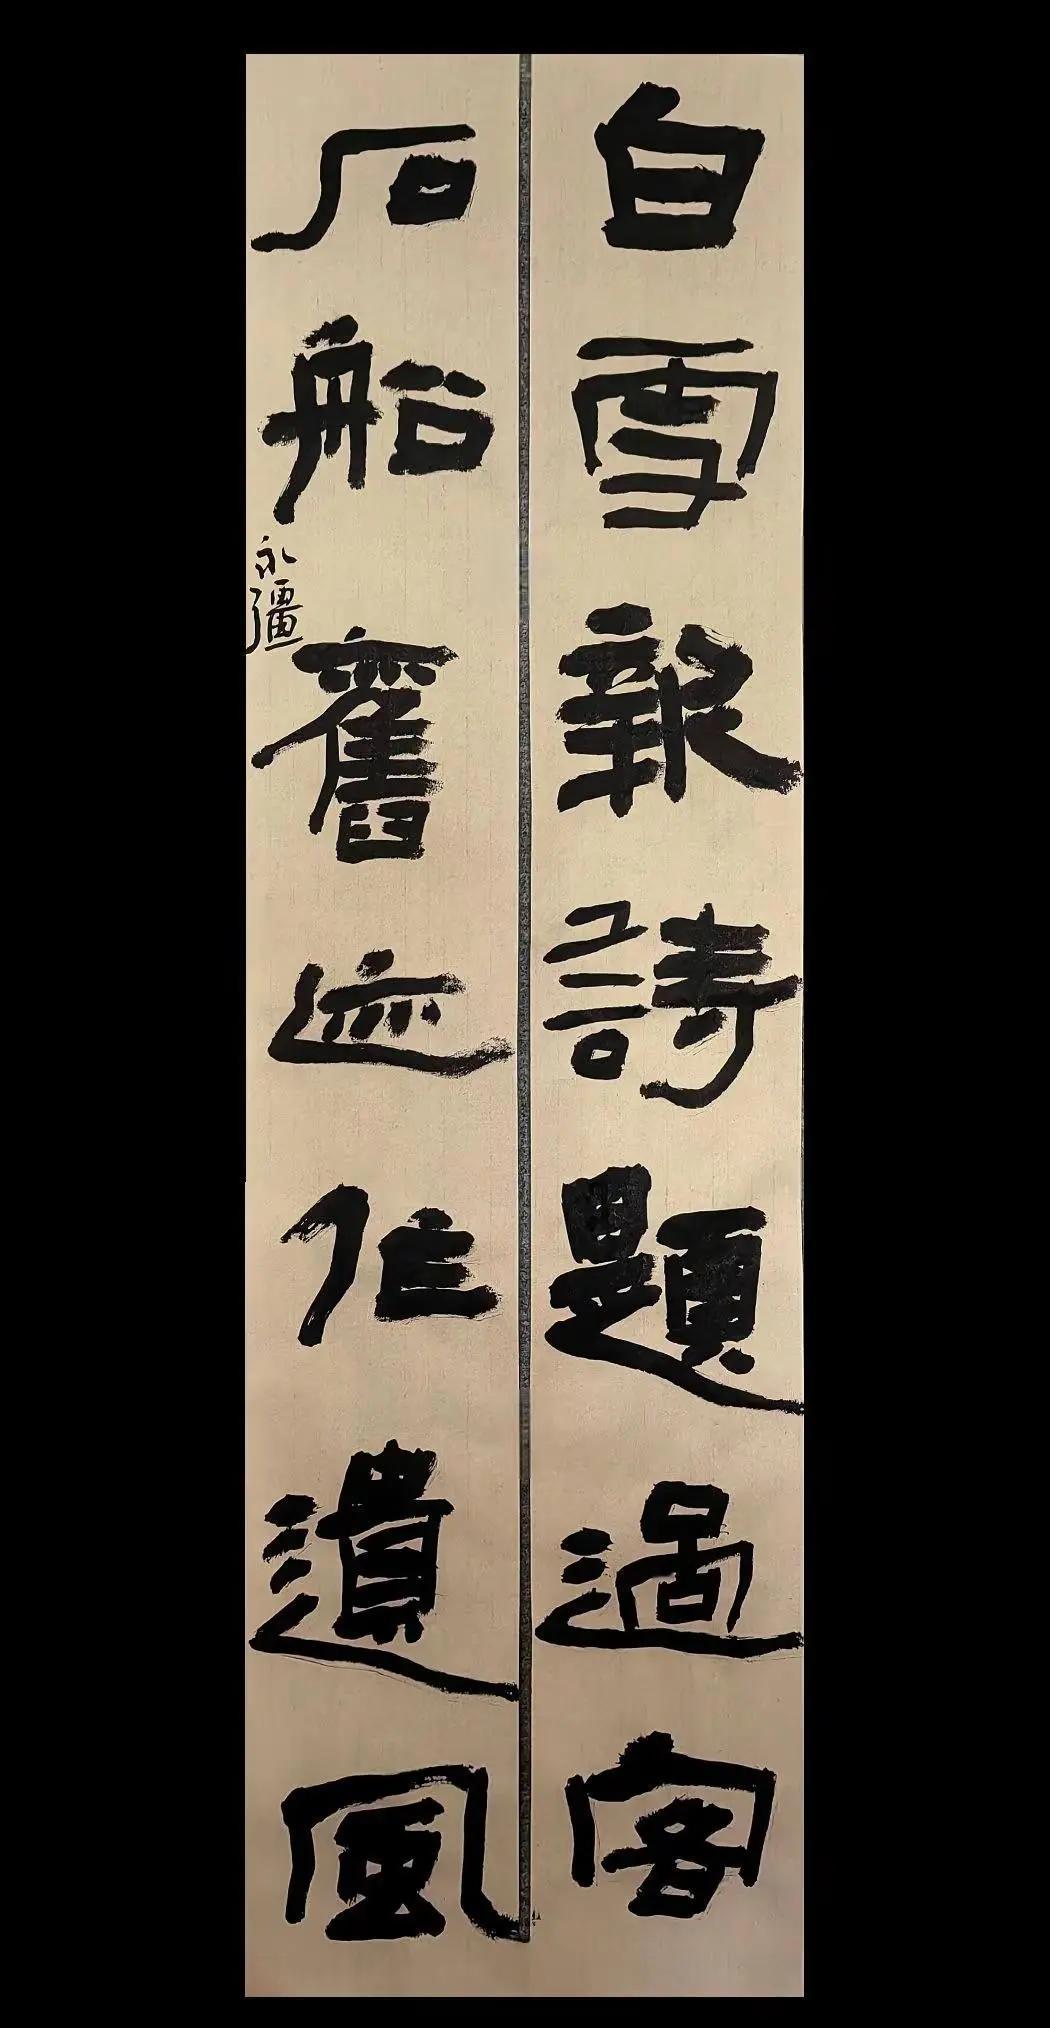 白雪報詩題過客
石船舊迹作遺風
永彊